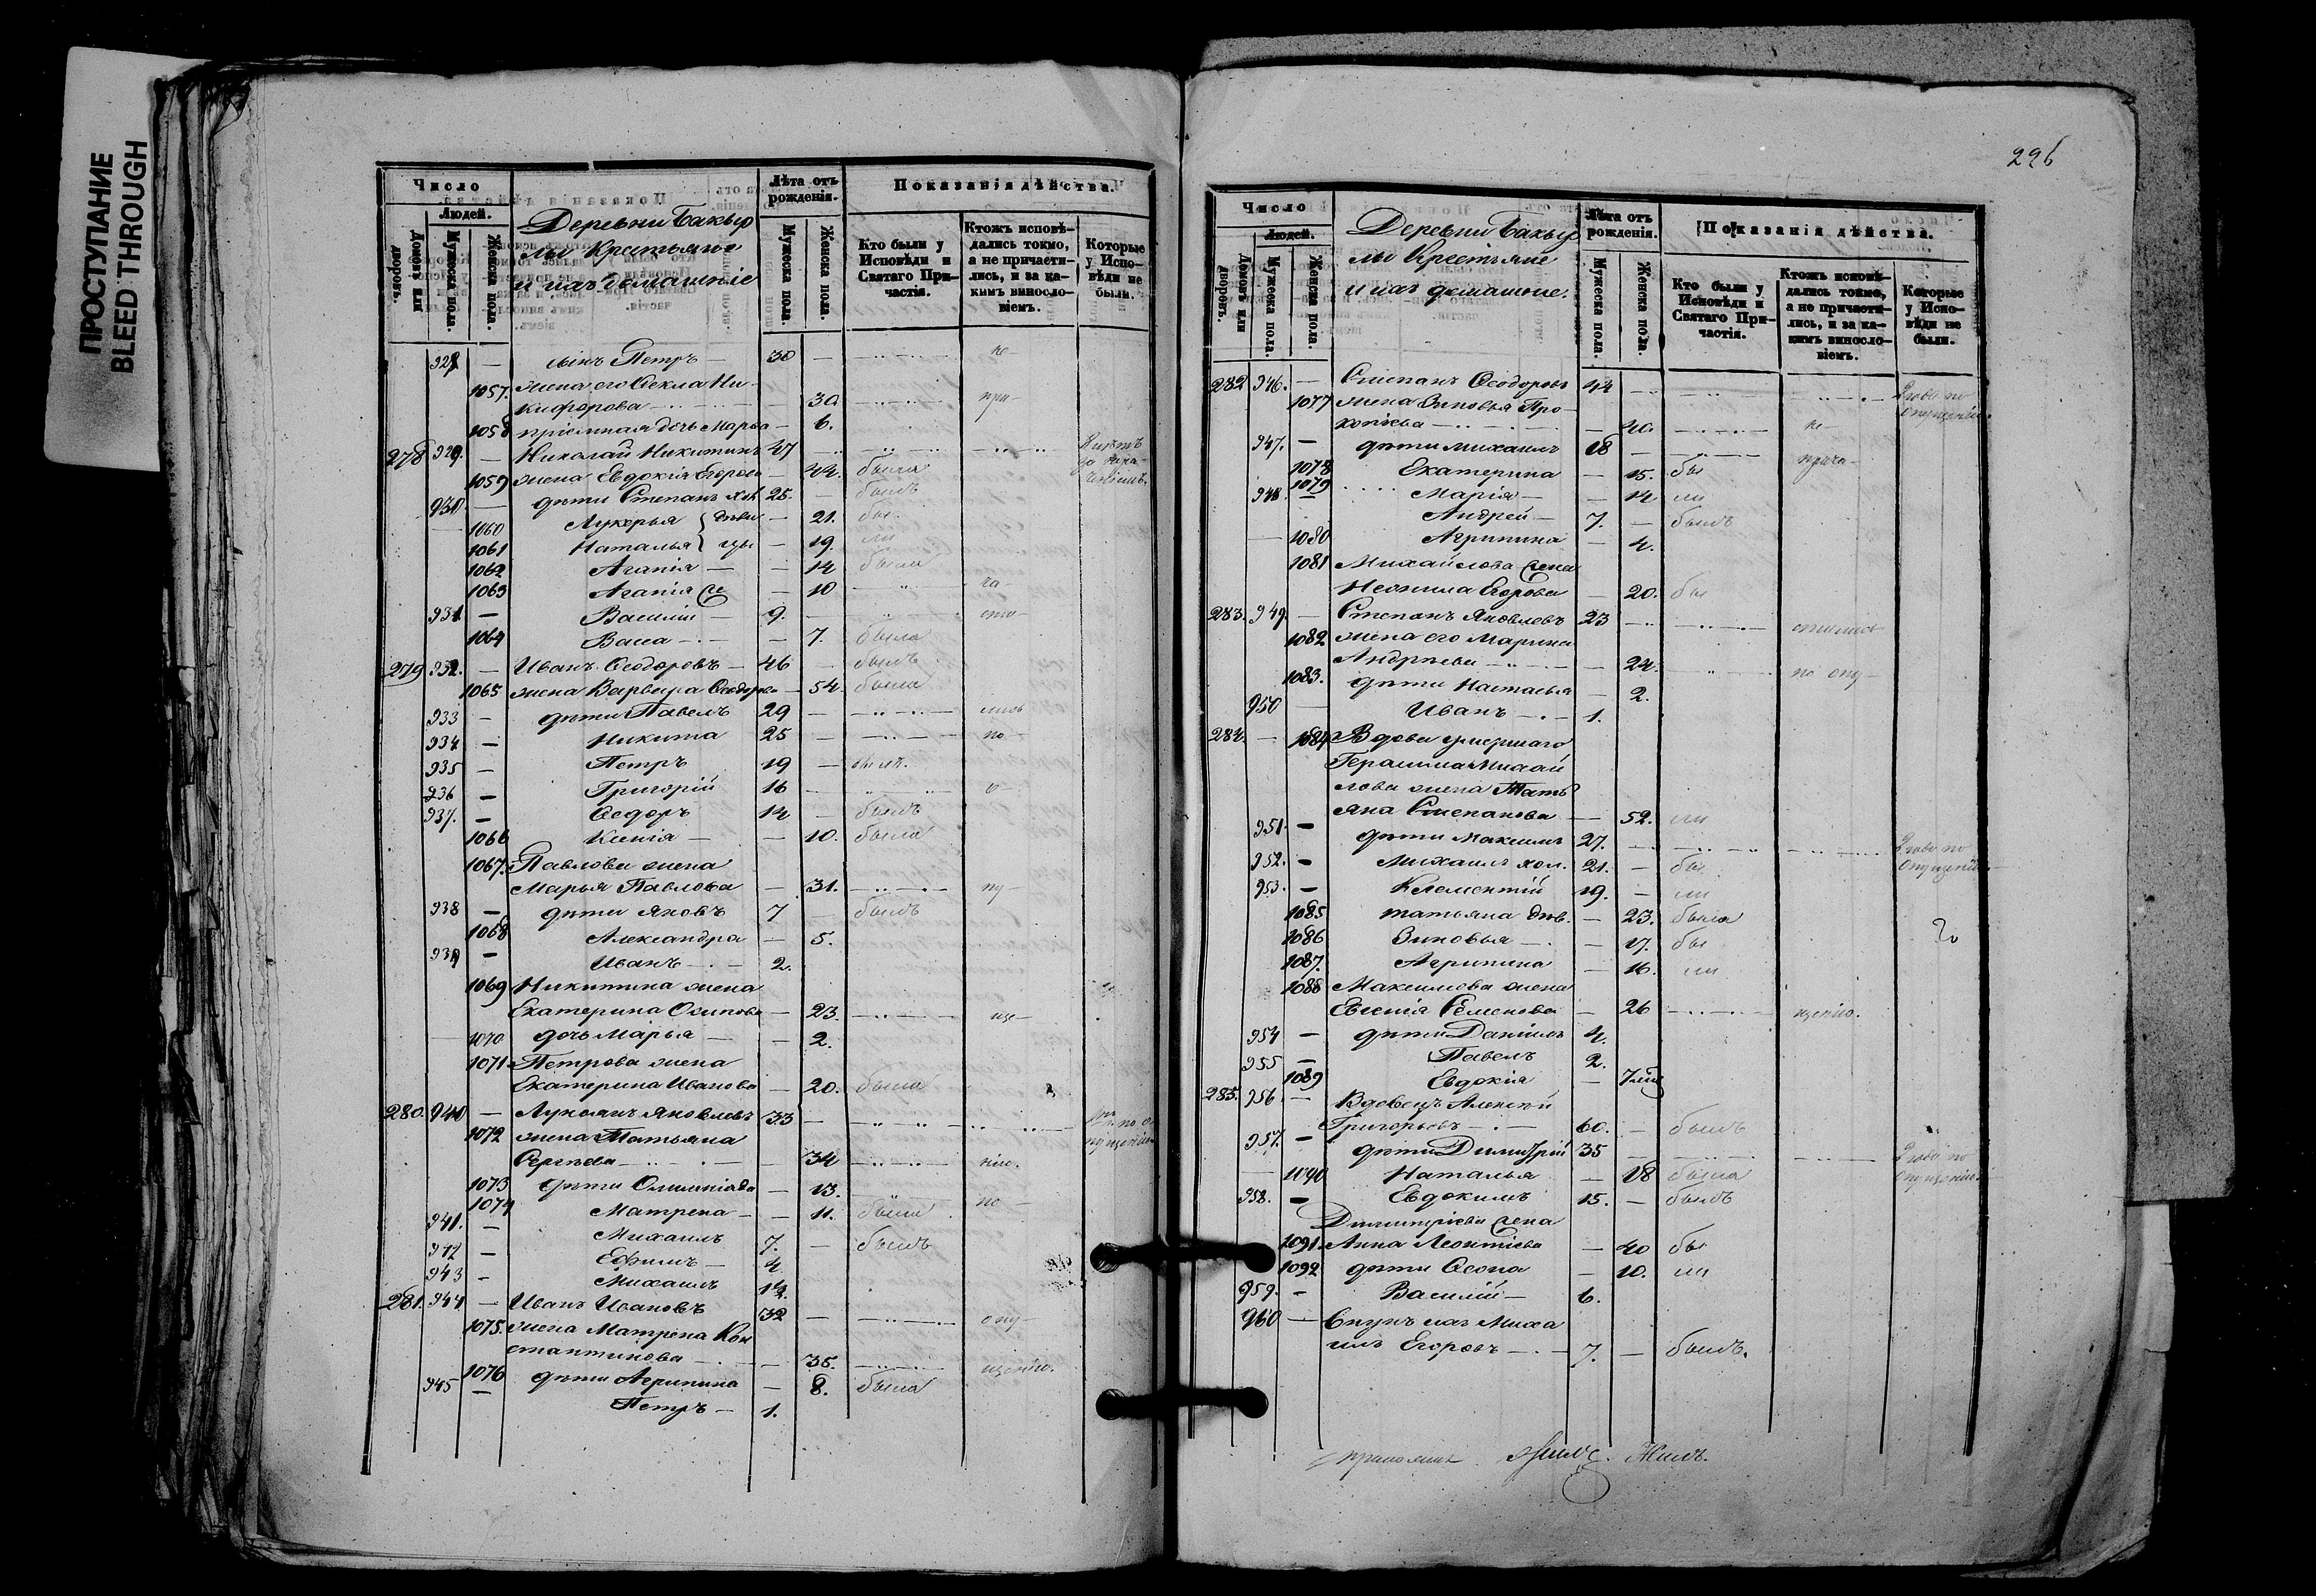 ПРОСТУПАНИЕ
BLEED THROUGH
Число
Людей.
Домовъ или дворовъ.
Мужеска пола.
Женска пола.
Деревни Бакыр
лы Крестьяне
и ихъ домашніе
Лѣта отъ рожденія.
Мужеска пола.
Женска пола.
Показанія дѣйства.
Кто были у Исповѣди и Святаго Причастія.
Ктожъ исповѣдались токмо, а не причастились, и за какимъ винословіемъ.
Которые у Исповѣди не были.
928 — сынъ Петръ — 30 —
1057. жена его Ѳекла Ни-
кифорова — 30. при-
1058 пріемная дочь Марѳа — 6.
278 929. — Николай Никитинъ 47
1059 жена Евдокія Егорова — 44. была
930. — дѣти Степанъ хол 25. — былъ
1060 Лукерья дѣви — 21. бы
1061 Наталья цы — 19. ли
1062 Агапія — — 14 была
1063 Агапія — 10 ча-
931 — Василій — 9. — сти-
1064 Васса — — 7. была
279 932. — Иванъ Ѳеодоровъ — 46 — былъ
1065 жена Варвара Ѳеодорова — 54. была
933 — дѣти Павелъ 29 — лись
934. — Никита 25 — по-
935 — Петръ 19 — былъ.
936 — Григорій 16 — о-
937. — Ѳедоръ 14 — былъ
1066 Ксенія — — 10. была
1067. Павлова жена
Марья Павлова — 31. пу-
938 — дѣти Яковъ 7 — былъ
1068 Александра — 5.
939 — Иванъ — 2.
1069 Никитина жена
Екатерина Осипова — 23. ще-
1070 дочь Марья — — 2.
1071 Петрова жена
Екатерина Иванова — 20. была
280. 940 — Лукьянъ Яковлевъ 33 — по о-
пущенію
1072 жена Татьяна
Сергѣева — 34 нію.
1073 дѣти Олимпіада — 13.
1074 Матрена — — 11. была по-
941. — Михаилъ 7. — былъ
942 — Ефимъ — 4
943 — Михаилъ
281. 944 — Иванъ Ивановъ 32 — опу-
1075. жена Матрена Кон
стантинова — 35. щенію.
1076 дѣти Агрипина — 8. была
945 — Петръ — 1.
296
Число
Людей.
Домовъ или дворовъ.
Мужеска пола.
Женска пола.
Деревни Бакыр
лы Крестьяне
и ихъ домашніе.
Лѣта отъ рожденія.
Мужеска пола.
Женска пола.
Показанія дѣйства.
Кто были у Исповѣди и Святаго Причастія.
Ктожъ исповѣдались токмо, а не причастились, и за какимъ винословіемъ.
Которые у Исповѣди не были.
282 946. — Степанъ Ѳеодоровъ 44 по
опущенію.
1077 жена Зиновья Про-
копіева — 40. не-
947. — дѣти Михаилъ 18 — прича-
1078 Екатерина — 15. бы
1079 Марія — — 14 ли
948. — Андрей — 7. — былъ
1080 Агрипина — 4.
1081 Михайлова жена
Неонила Егорова — 20. бы
283. 949. — Степанъ Яковлевъ 23 — стились
1082 жена его Марина
Андрѣева — 24. по опу-
1083. дѣти Настасья — 2.
950 Иванъ — 1.
284. — 1084 Вдова умершаго
Герасима Михай
лова жена Тать
яна Степанова — 52. ли
951. — дѣти Максимъ 27. по
опущенію.
952. — Михаилъ хол. 21. — бы
953. — Климентій 19. — ли
1085 Татьяна дѣв. — 23. была
1086 Зиновья — — 17. бы
1087. Агрипина — 16. ли
1088 Максимова жена
Евгенія Семенова — 26 щенію.
954 — дѣти Даніилъ 4.
955 — Павелъ 2.
1089 Евдокія — 7
285. 956. — Вдовецъ Алексѣй
Григорьевъ — 60. — былъ
957. — дѣти Димитрій 35 по
опущенію.
1090 Наталья — 18 была
958. — Евдокимъ 15. — былъ
Димитріева жена
1091. Анна Леонтіева — 40 бы
1092 дѣти Ѳеона — 10. ли
959. — Василій — 6.
960 — Внукъ ихъ Миха
илъ Егоровъ — 7. — былъ.